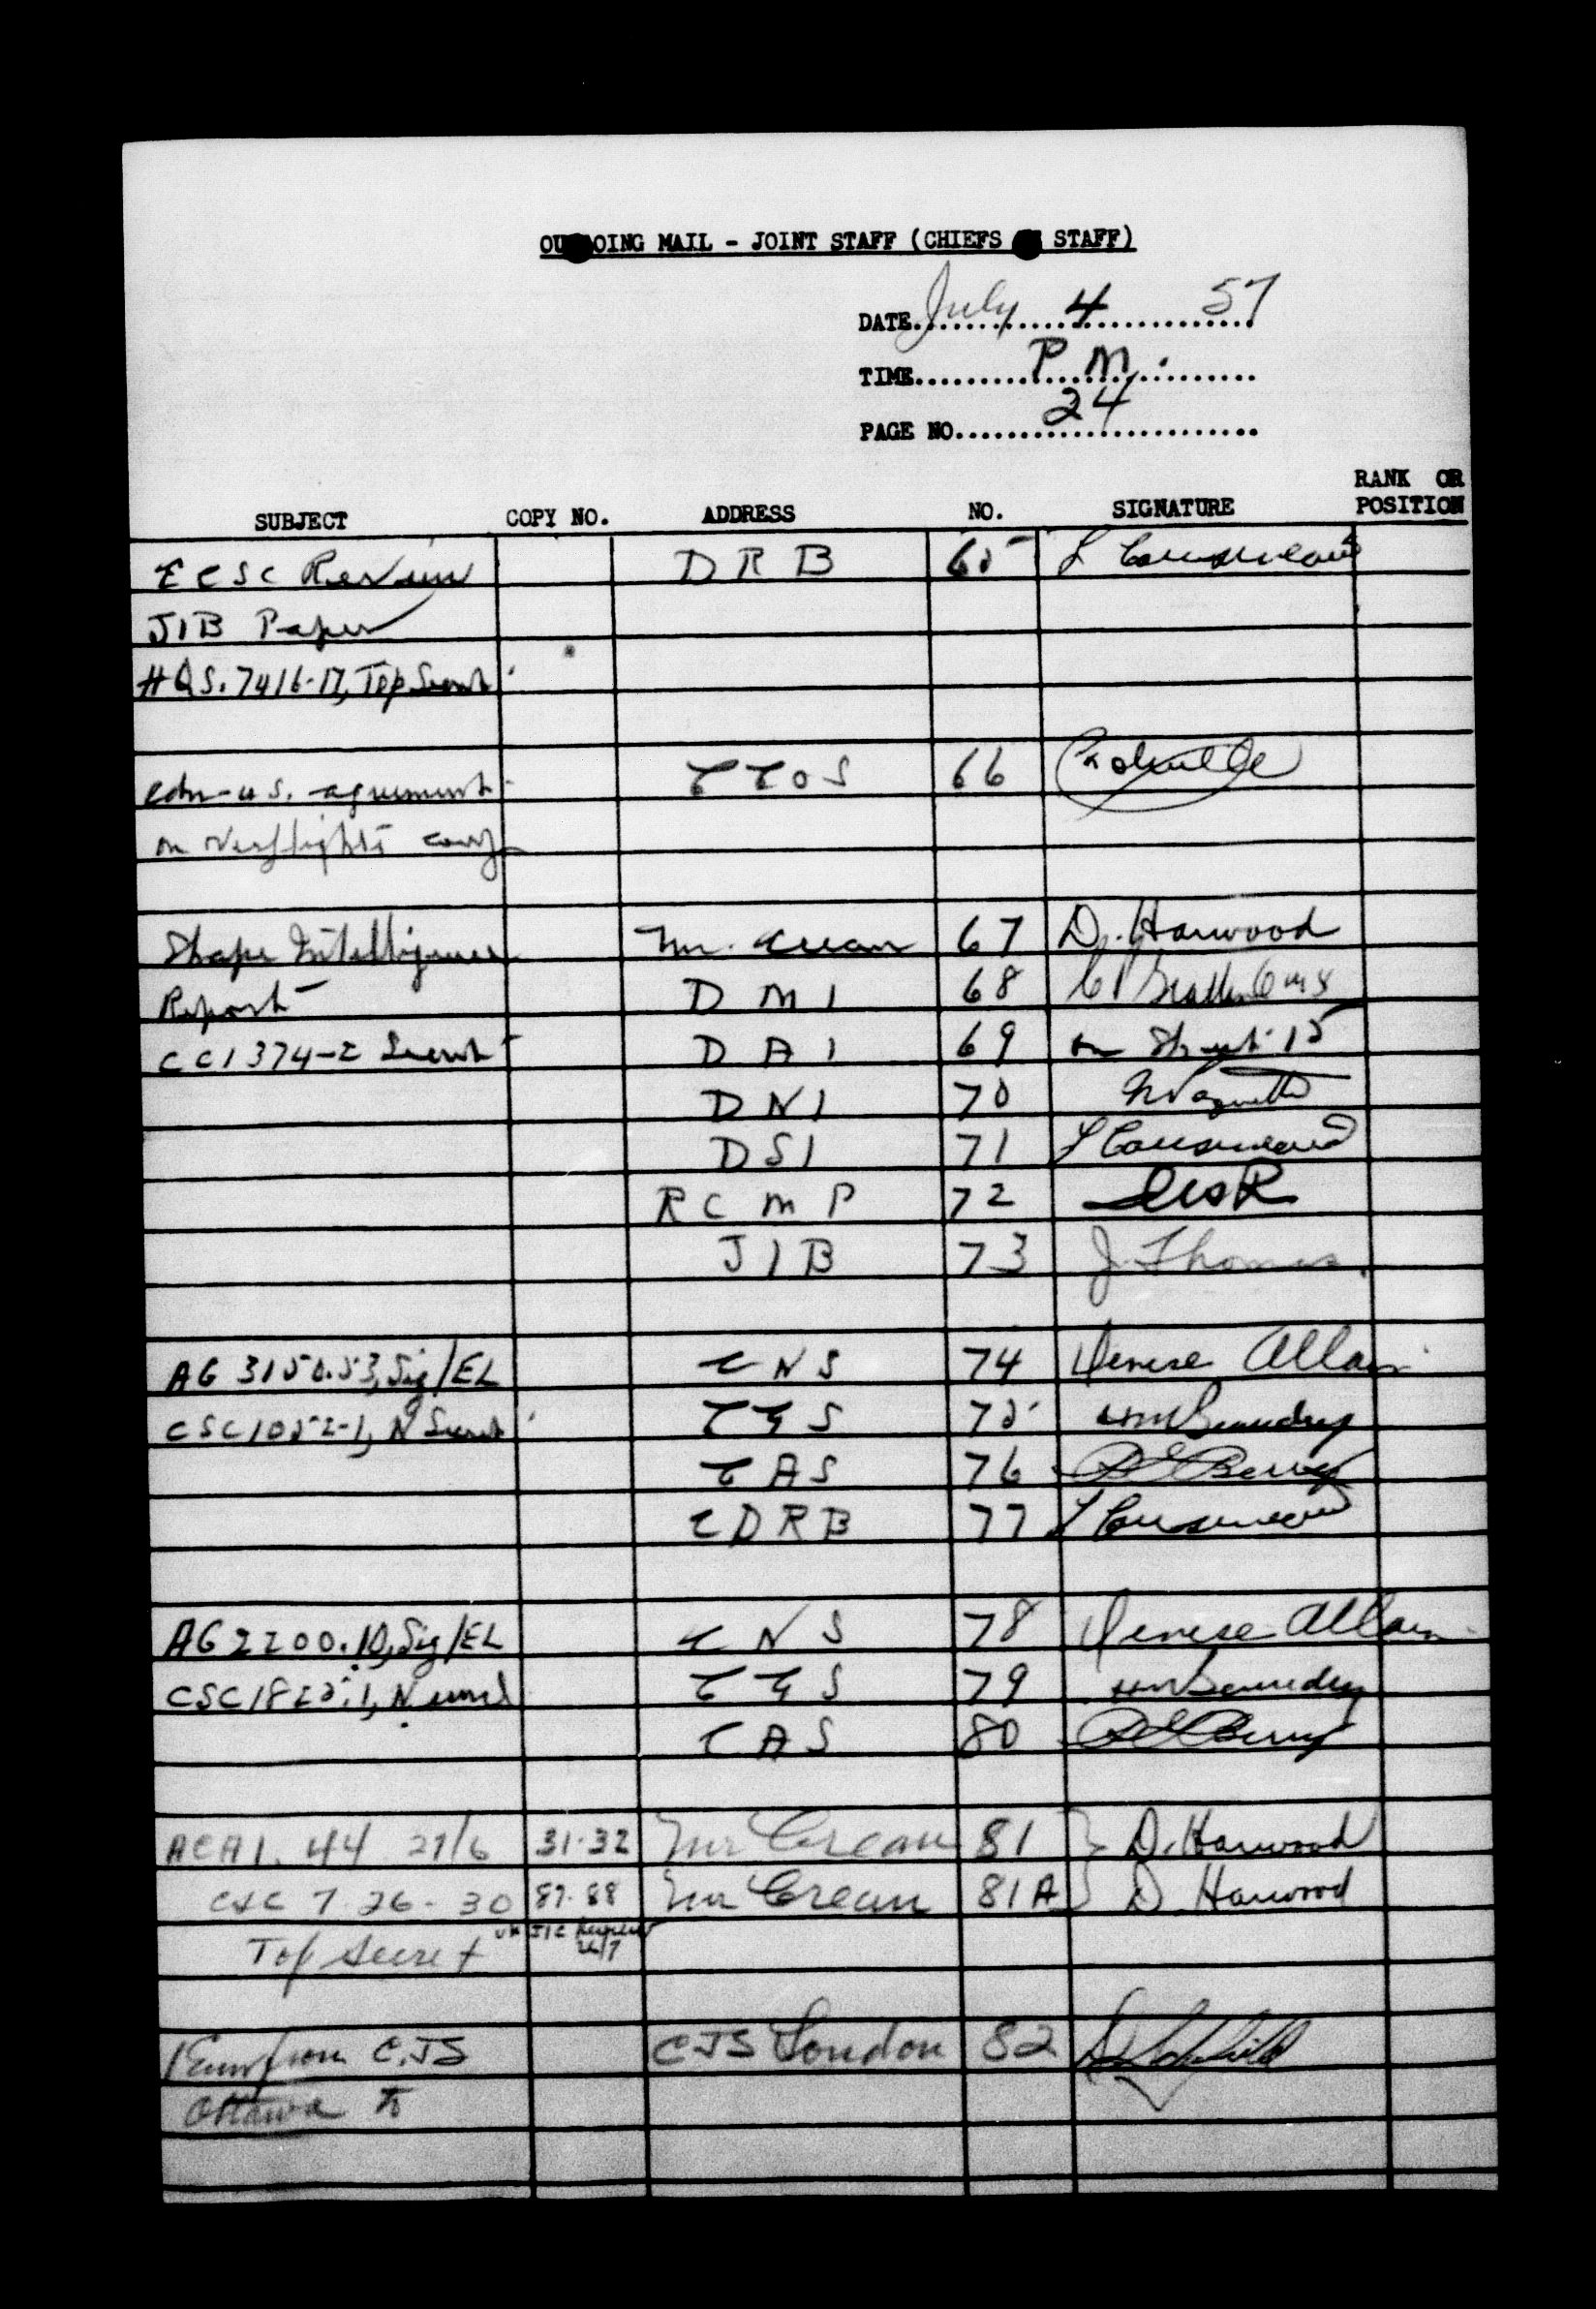 OU OING MAIL - JOINT STAFF (CHIEFS STAFF)
DATE July 4 57
TIME P M.
PAGE NO. 24
SUBJECT COPY NO. ADDRESS NO. SIGNATURE RANK OR POSITION
ECSC Review DRB 65 L Cousineau
JIB Paper
HQS. 7416-17, Top Secret
Cdn-U.S. agreement CCOS 66
on overflights
Shape Intelligence Mr. Crean 67 D. Harwood
Report DMI 68
CC1374-2 Secret DAI 69 on Sheet 15
DNI 70
DSI 71 L Cousineau
RCMP 72
JIB 73 J. Thomas.
AG 3150.53, Sig/EL CNS 74 Denise Allain
CSC1052-1, N Secret CGS 75 Beaudry
CAS 76 Berry
CDRB 77 L Cousineau
AG2200.10, Sig/EL CNS 78 Denise Allain
CSC1825.1, N CGS 79 Beaudry
CAS 80 Berry
ACAI. 44 27/6 31-32 Mr Crean 81 } D. Harwood
CSC 7-26-30 87-88 Mr Crean 81A } D Harwood
Top Secret UK JIC Request
from C.JS CJS London 82
Ottawa to